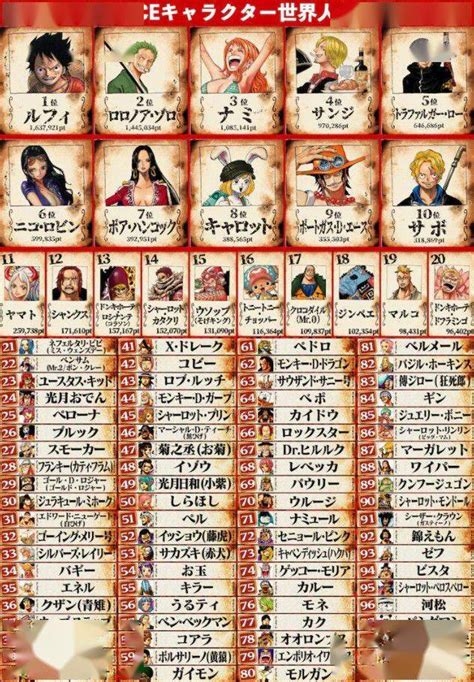 CEキャラクター世界人
1位
ルフィ
1,637,921pt
2位
ロロノア・ゾロ
1,445,034pt
3位
ナミ
1,085,141pt
4位
サンジ
970,286pt
5位
トラファルガー・ロー
646,686pt
6位
ニコ・ロビン
599,835pt
7位
ボア・ハンコック
392,951pt
8位
キャロット
388,565pt
9位
ポートガス・D・エース
355,502pt
10位
サボ
318,869pt
11
ヤマト
259,738pt
12
シャンクス
171,610pt
13
ドンキホーテ
ロシナンテ
(コラソン)
157,167pt
14
シャーロット
カタクリ
152,070pt
15
ウソップ
(そげキング)
131,090pt
16
トニートニー
チョッパー
116,364pt
17
クロコダイル
(Mr.0)
109,837pt
18
ジンベエ
102,354pt
19
マルコ
98,431pt
20
ドンキホーテ
ドフラミンゴ
96,402pt
21 ネフェルタリ・ビビ
(ミス・ウェンズデー)
22 ベンサム
(Mr.2/ボン・クレー)
23 ユースタス・キッド
24 光月おでん
25 ペローナ
26 ブルック
27 スモーカー
28 フランキー(カティ・フラム)
29 ゴール・D・ロジャー
(ゴールド・ロジャー)
30 ジュラキュール・ミホーク
31 エドワード・ニューゲート
(白ひげ)
32 ゴーイング・メリー号
33 シルバーズ・レイリー
34 バギー
35 エネル
36 クザン(青雉)
41 X・ドレーク
42 コビー
43 ロブ・ルッチ
44 モンキー・D・ガープ
45 シャーロット・プリン
46 マーシャル・D・ティーチ
(黒ひげ)
47 菊之丞(お菊)
48 イゾウ
49 光月日和(小紫)
50 しらほし
51 ペル
52 イッショウ(藤虎)
53 サカズキ(赤犬)
54 お玉
55 キラー
56 うるティ
ベン・ベックマン
コアラ
59 ボルサリーノ(黄猿)
60 ガイモン
61 ペドロ
62 モンキー・D・ドラゴン
63 サウザンド・サニー号
64 ベポ
65 カイドウ
66 ロックスター
67 Dr.ヒルルク
68 レベッカ
69 パウリー
70 ウルージ
71 ナミュール
72 セニョール・ピンク
73 キャベンディッシュ(ハクバ)
74 ゲッコー・モリア
75 カルー
76 モネ
77 カク
78 オオロンブス
79 エンポリオ・イワ
80 モルガン
81 ベルメール
82 バジル・ホーキンス
83 傳ジロー(狂死郎)
84 ギン
85 ジュエリー・ボニー
86 シャーロット・リンリン
(ビッグ・マム)
87 マーガレット
88 ワイパー
89 クンフージュゴン
90 シャーロット・モンドール
91 シーザー・クラウン
92 錦えもん
93 ゼフ
94 ビスタ
95 シャーロット・ペロスペロー
96 河松